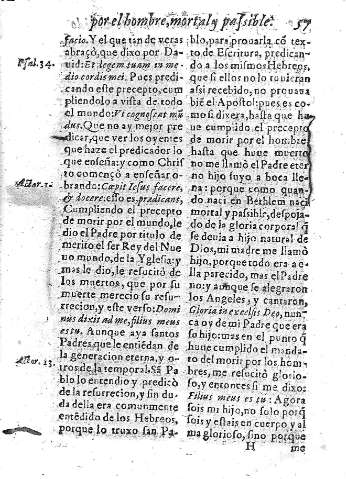 por el hombre, mortal y passible. 57
facio. Y el que tan de veras
abraçò, que dixo por Da-
Psal. 34.
uid: Et legem tuam in me
dio cordis mei. Pues predi-
cando este precepto, cum
pliendolo a vista de todo
el mundo: Vt cognoscat mũ
dus. Que no ay mejor pre
dicar, que ver los oyentes
que haze el predicador lo
que enseña: y como Chris
to començò a enseñar o-
Actor. 1.
brando: Cœpit Iesus facere,
& docere: esto es, predicans,
Cumpliendo el precepto
de morir por el mundo, le
dio el Padre por titulo de
merito el ser Rey del Nue
uo mundo, de la Yglesia: y
mas le dio, le resucitò de
los muertos, que por su
muerte merecio su resu-
rrecion, y este verso: Domi
nus dixit ad me, filius meus
es tu. Aunque aya santos
Padres, que le entiẽdan de
la generacion eterna, y o-
Actor. 13.
tros de la temporal. Sã Pa
blo lo entendio y predicò
de la resurrecion, y sin du-
da della era comunmente
entẽdido de los Hebreos,
porque lo truxo san Pa-
blo, para prouarla cõ tex-
to de Escritura, predican-
do a los mismos Hebreos,
que si ellos no lo tuuieran
assi recebido, no prouaua
biẽ el Apostol: pues es co-
mo si dixera, hasta que hu
ue cumplido el precepto
de morir por el hombre,
hasta que huue muerto
no me llamò el Padre eter
no hijo suyo a boca lle-
na: porque como quan-
do naci en Bethlem naci
mortal y passible, despoja-
do de la gloria corporal q̃
se deuia a hijo natural de
Dios, mi madre me llamò
hijo, porque todo era a e-
lla parecido, mas el Padre
no: y aunque se alegraron
los Angeles, y cantaron,
Gloria in excelsis Deo, nun-
ca oy de mi Padre que era
su hijo: mas en el punto q̃
huue cumplido el manda-
to del morir por los hom-
bres, me resucitò glorio-
so, y entonces si me dixo:
Filius meus es tu: Agora
sois mi hijo, no solo porq̃
sois y estais en cuerpo, y al
ma glorioso, sino porque
H me